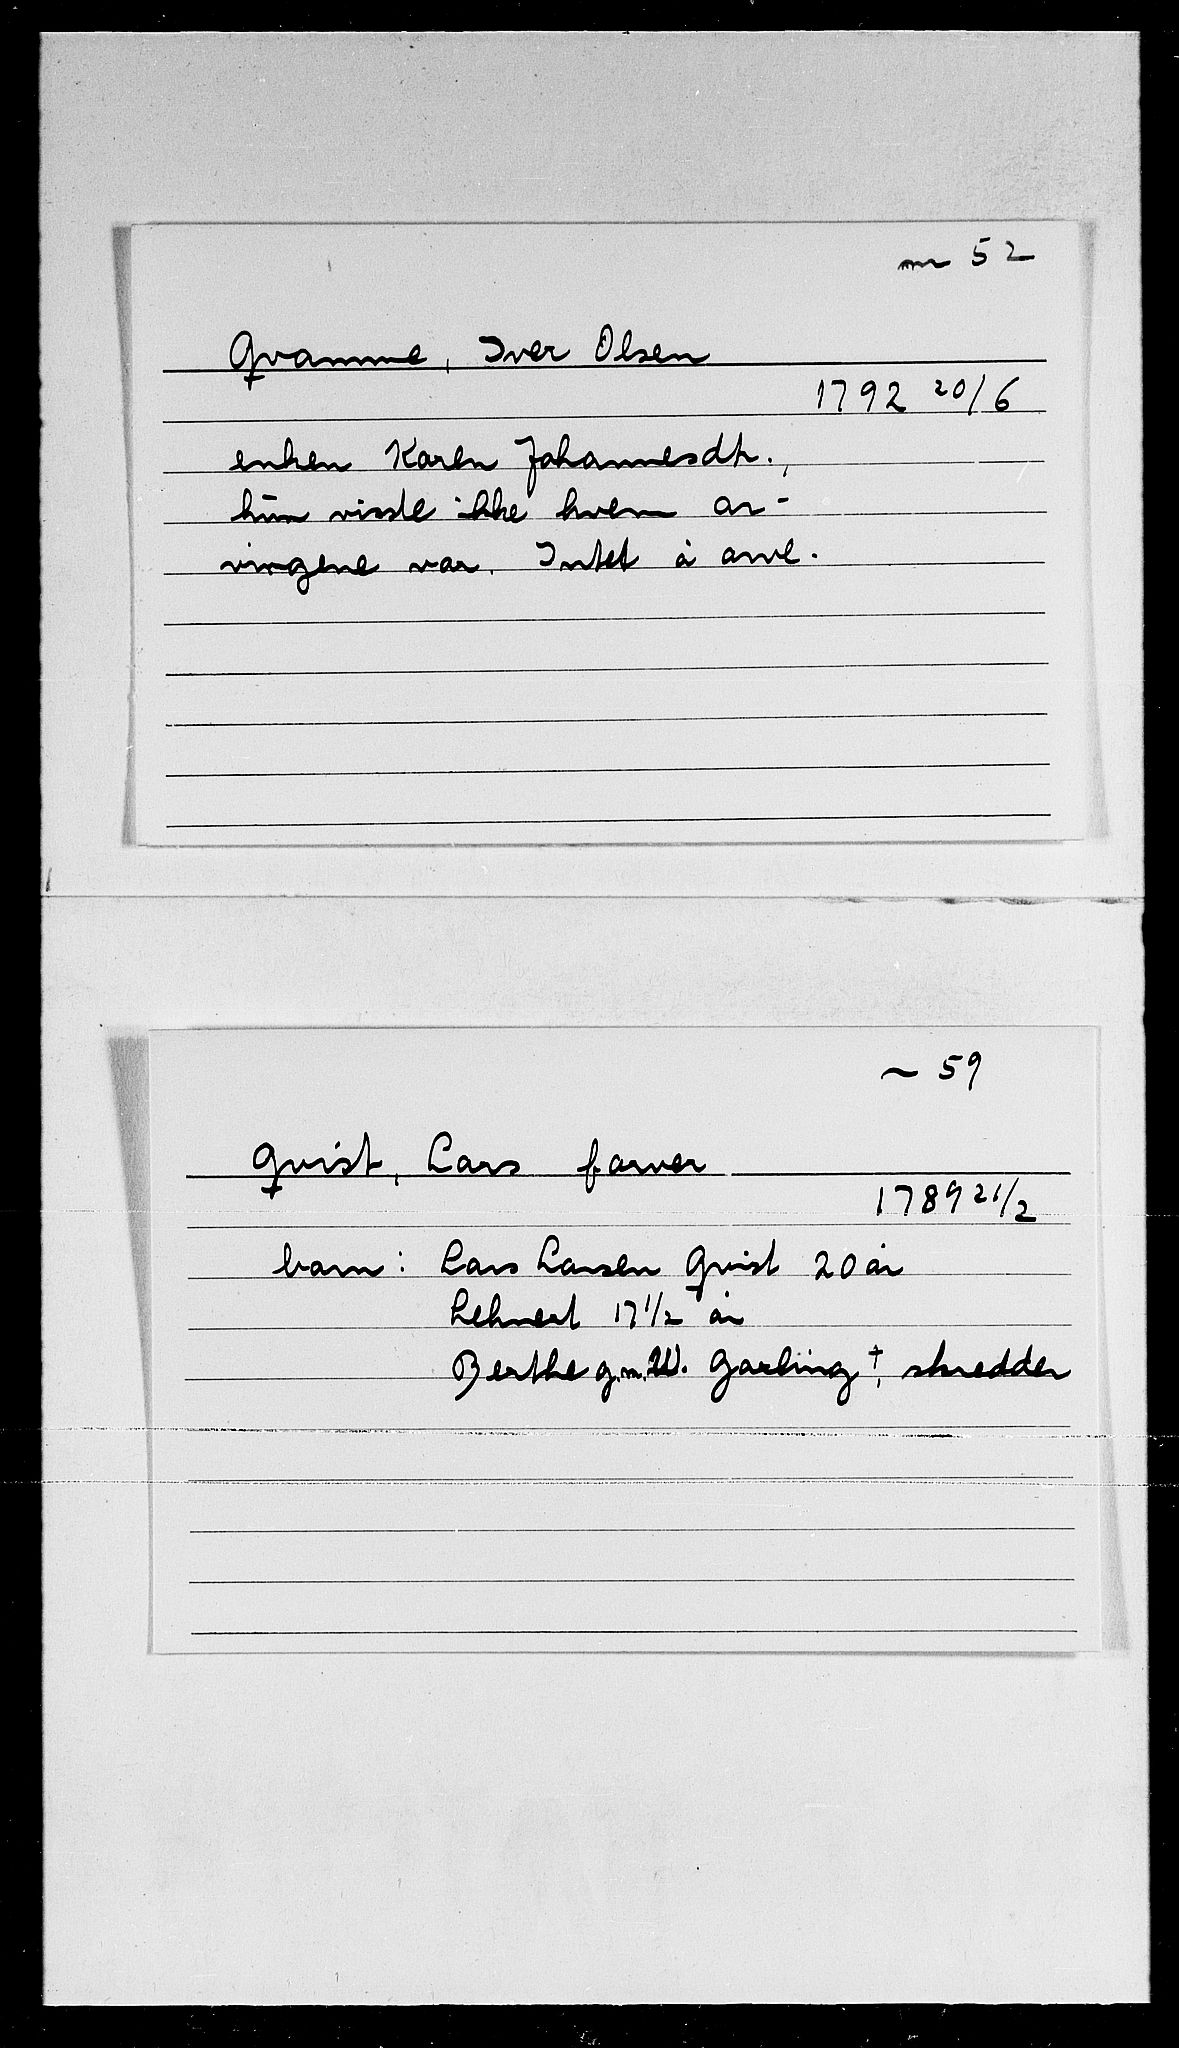 nr 52
Qvamme, Iver Olsen
1792 20/6
enken Karen Johannesdtr.,
hun visste ikke hvem ar-
vingene var. Intet å arve.
59
Qvist, Lars farver
1789 21/2
barn: Lars Larsen Qvist 20 år
Lehnert 17 1/2 år
Berthe g.m. W. Garling †, skredder